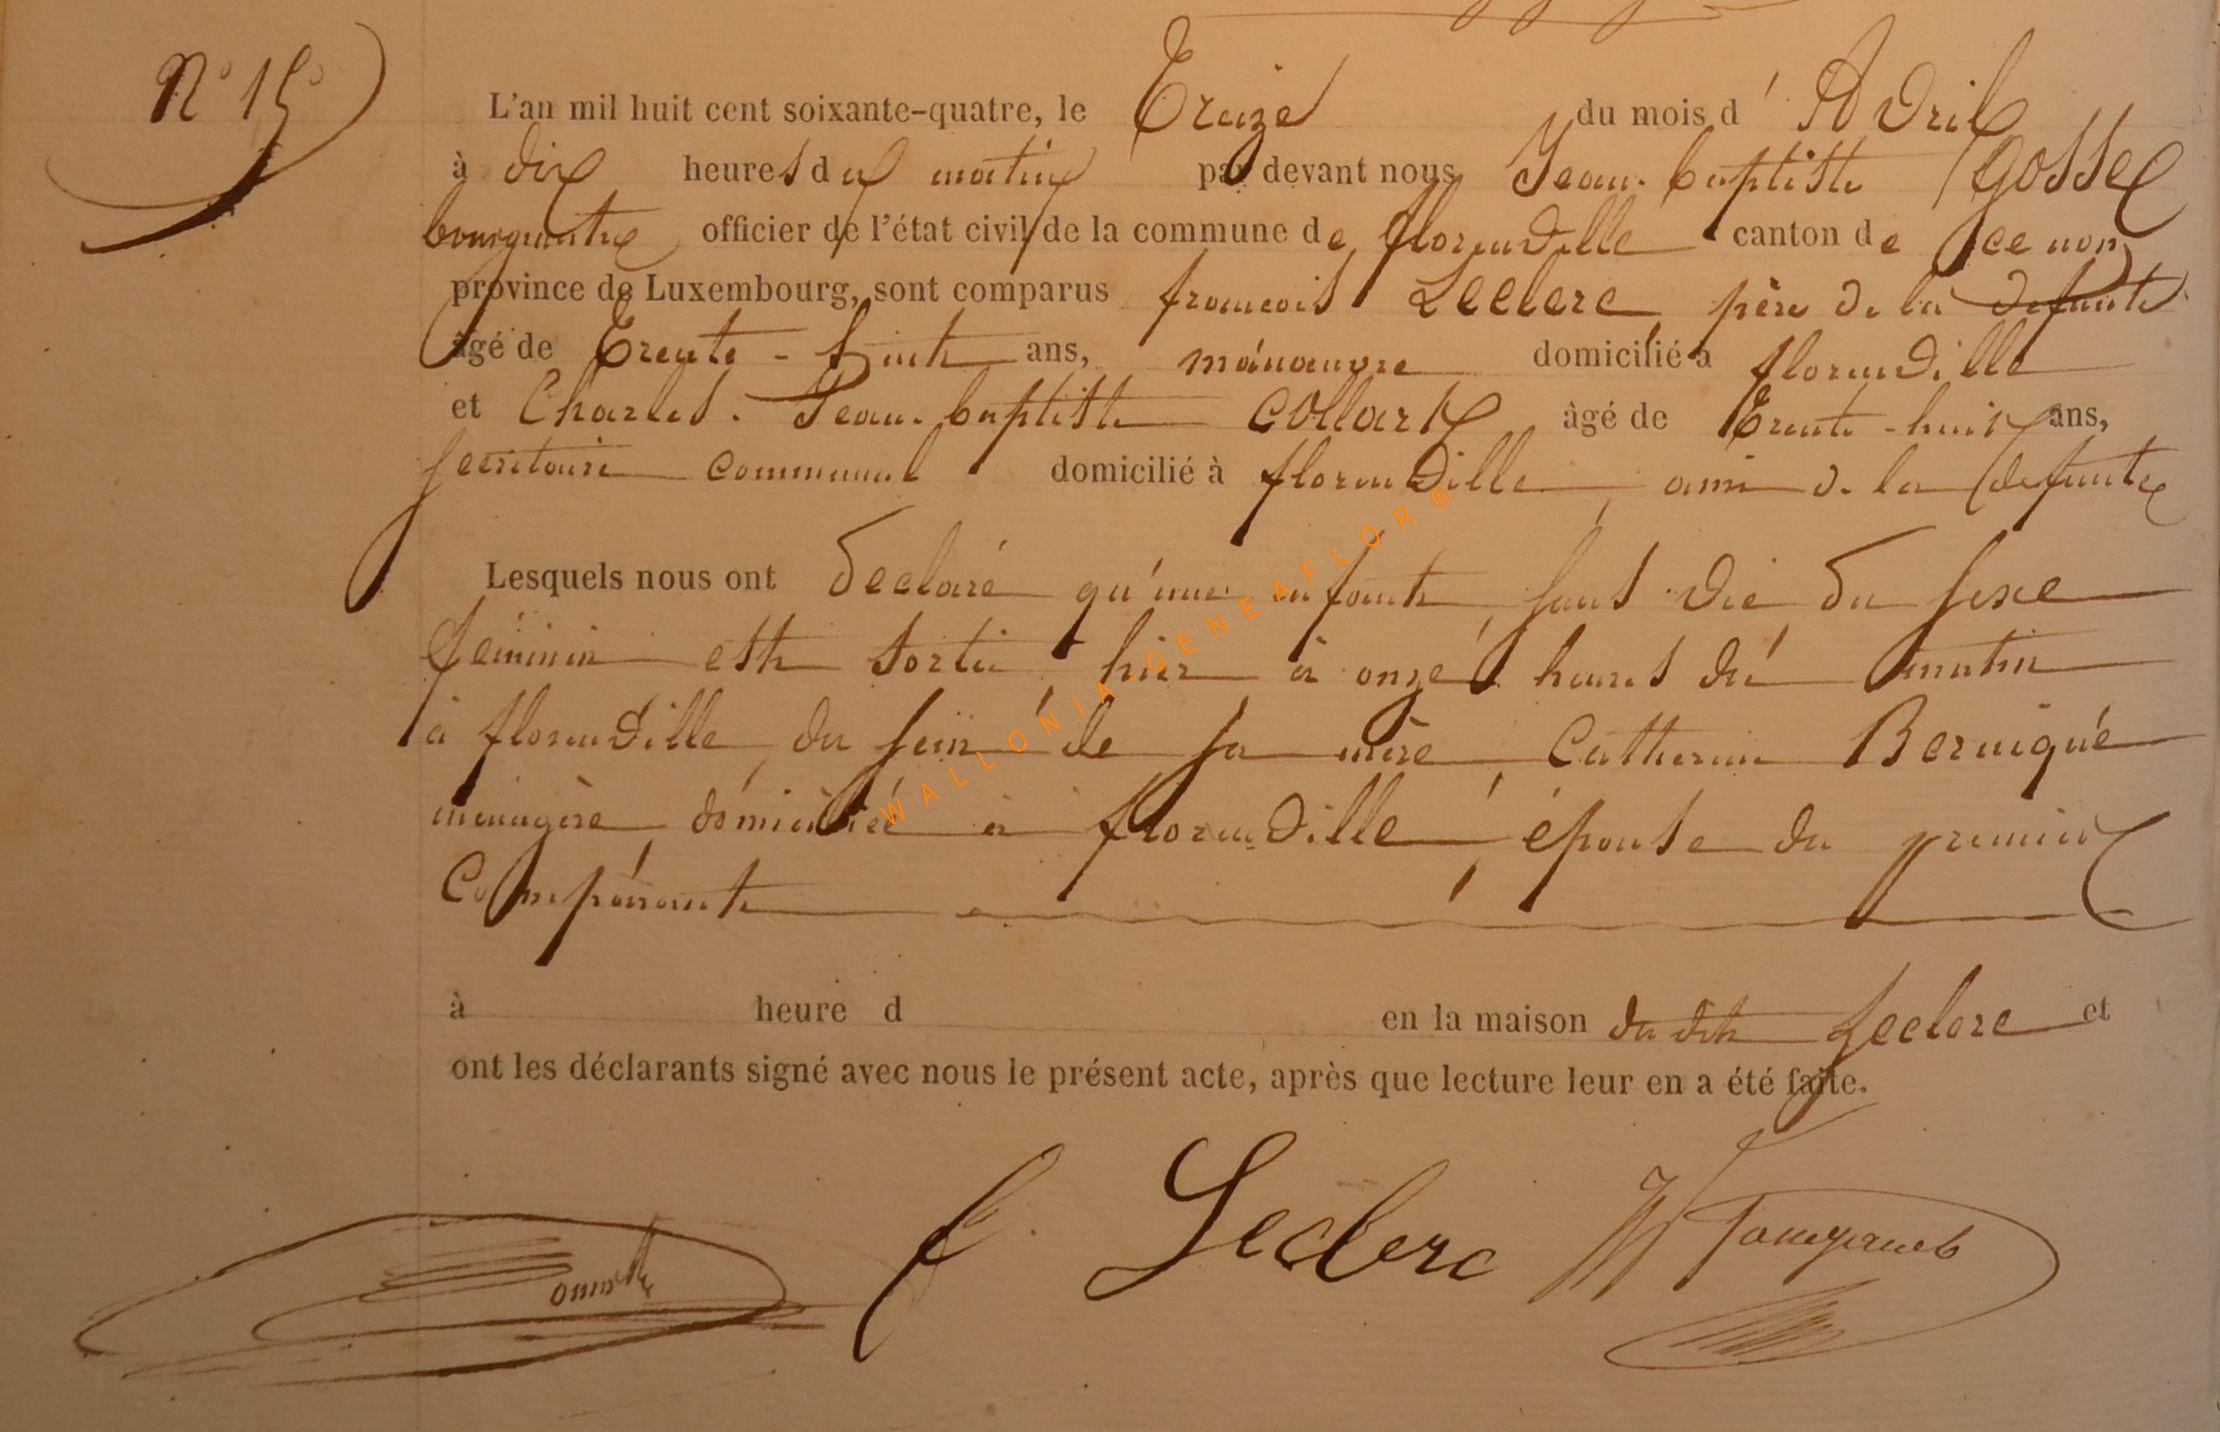 N° 15
L'an mil huit cent soixante-quatre, le Treize du mois d'Avril
à dix heures du matin par devant nous Jean-baptiste Gosse
bourgmestre officier de l'état civil de la commune de florenville canton de
province de Luxembourg, sont comparus francois Leclerc père de la defunte
âgé de Trente-huit ans, manœuvre domicilié à florenville
et Charles-Jean-baptiste Collart âgé de Trente-huit ans,
secrétaire communal domicilié à florenville ami de la defunte
Lesquels nous ont déclaré qu'une enfant sans vie du sexe
féminin est sortie hier à onze heures du matin
à florenville du sein de sa mère Catherine Bernique
ménagère domiciliée à florenville, épouse du premier
Comparant
à heure d en la maison dudit Leclerc et
ont les déclarants signé avec nous le présent acte, après que lecture leur en a été faite.
f. Leclerc
WALLONIA GENEAFLOR ©